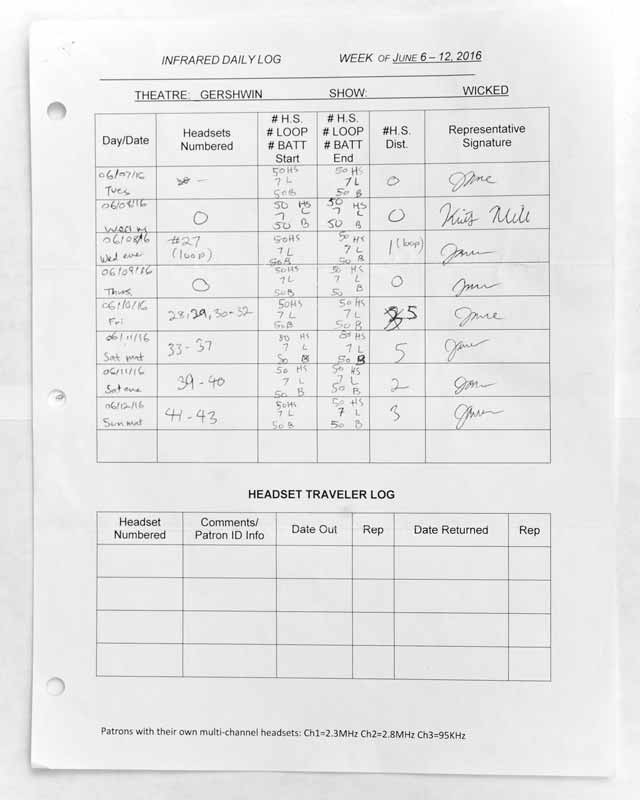 INFRARED DAILY LOG WEEK OF JUNE 6 – 12, 2016
THEATRE: GERSHWIN SHOW: WICKED
Day/Date Headsets Numbered # H.S. # LOOP # BATT Start # H.S. # LOOP # BATT End #H.S. Dist. Representative Signature
06/07/16 Tues - 50 HS 7 L 50 B 50 HS 7 L 50 B 0
06/08/16 Wed 0 50 HS 7 L 50 B 50 HS 7 L 50 B 0
06/08/16 Wed eve #27 (loop) 50 HS 7 L 50 B 50 HS 7 L 50 B 1 (loop)
06/09/16 Thurs 0 50 HS 7 L 50 B 50 HS 7 L 50 B 0
06/10/16 Fri 28, 29, 30-32 50 HS 7 L 50 B 50 HS 7 L 50 B 5
06/11/16 Sat mat 33-37 50 HS 7 L 50 B 50 HS 7 L 50 B 5
06/11/16 Sat eve 39-40 50 HS 7 L 50 B 50 HS 7 L 50 B 2
06/12/16 Sun mat 41-43 50 HS 7 L 50 B 50 HS 7 L 50 B 3
HEADSET TRAVELER LOG
Headset Numbered Comments/ Patron ID Info Date Out Rep Date Returned Rep
Patrons with their own multi-channel headsets: Ch1=2.3MHz Ch2=2.8MHz Ch3=95KHz